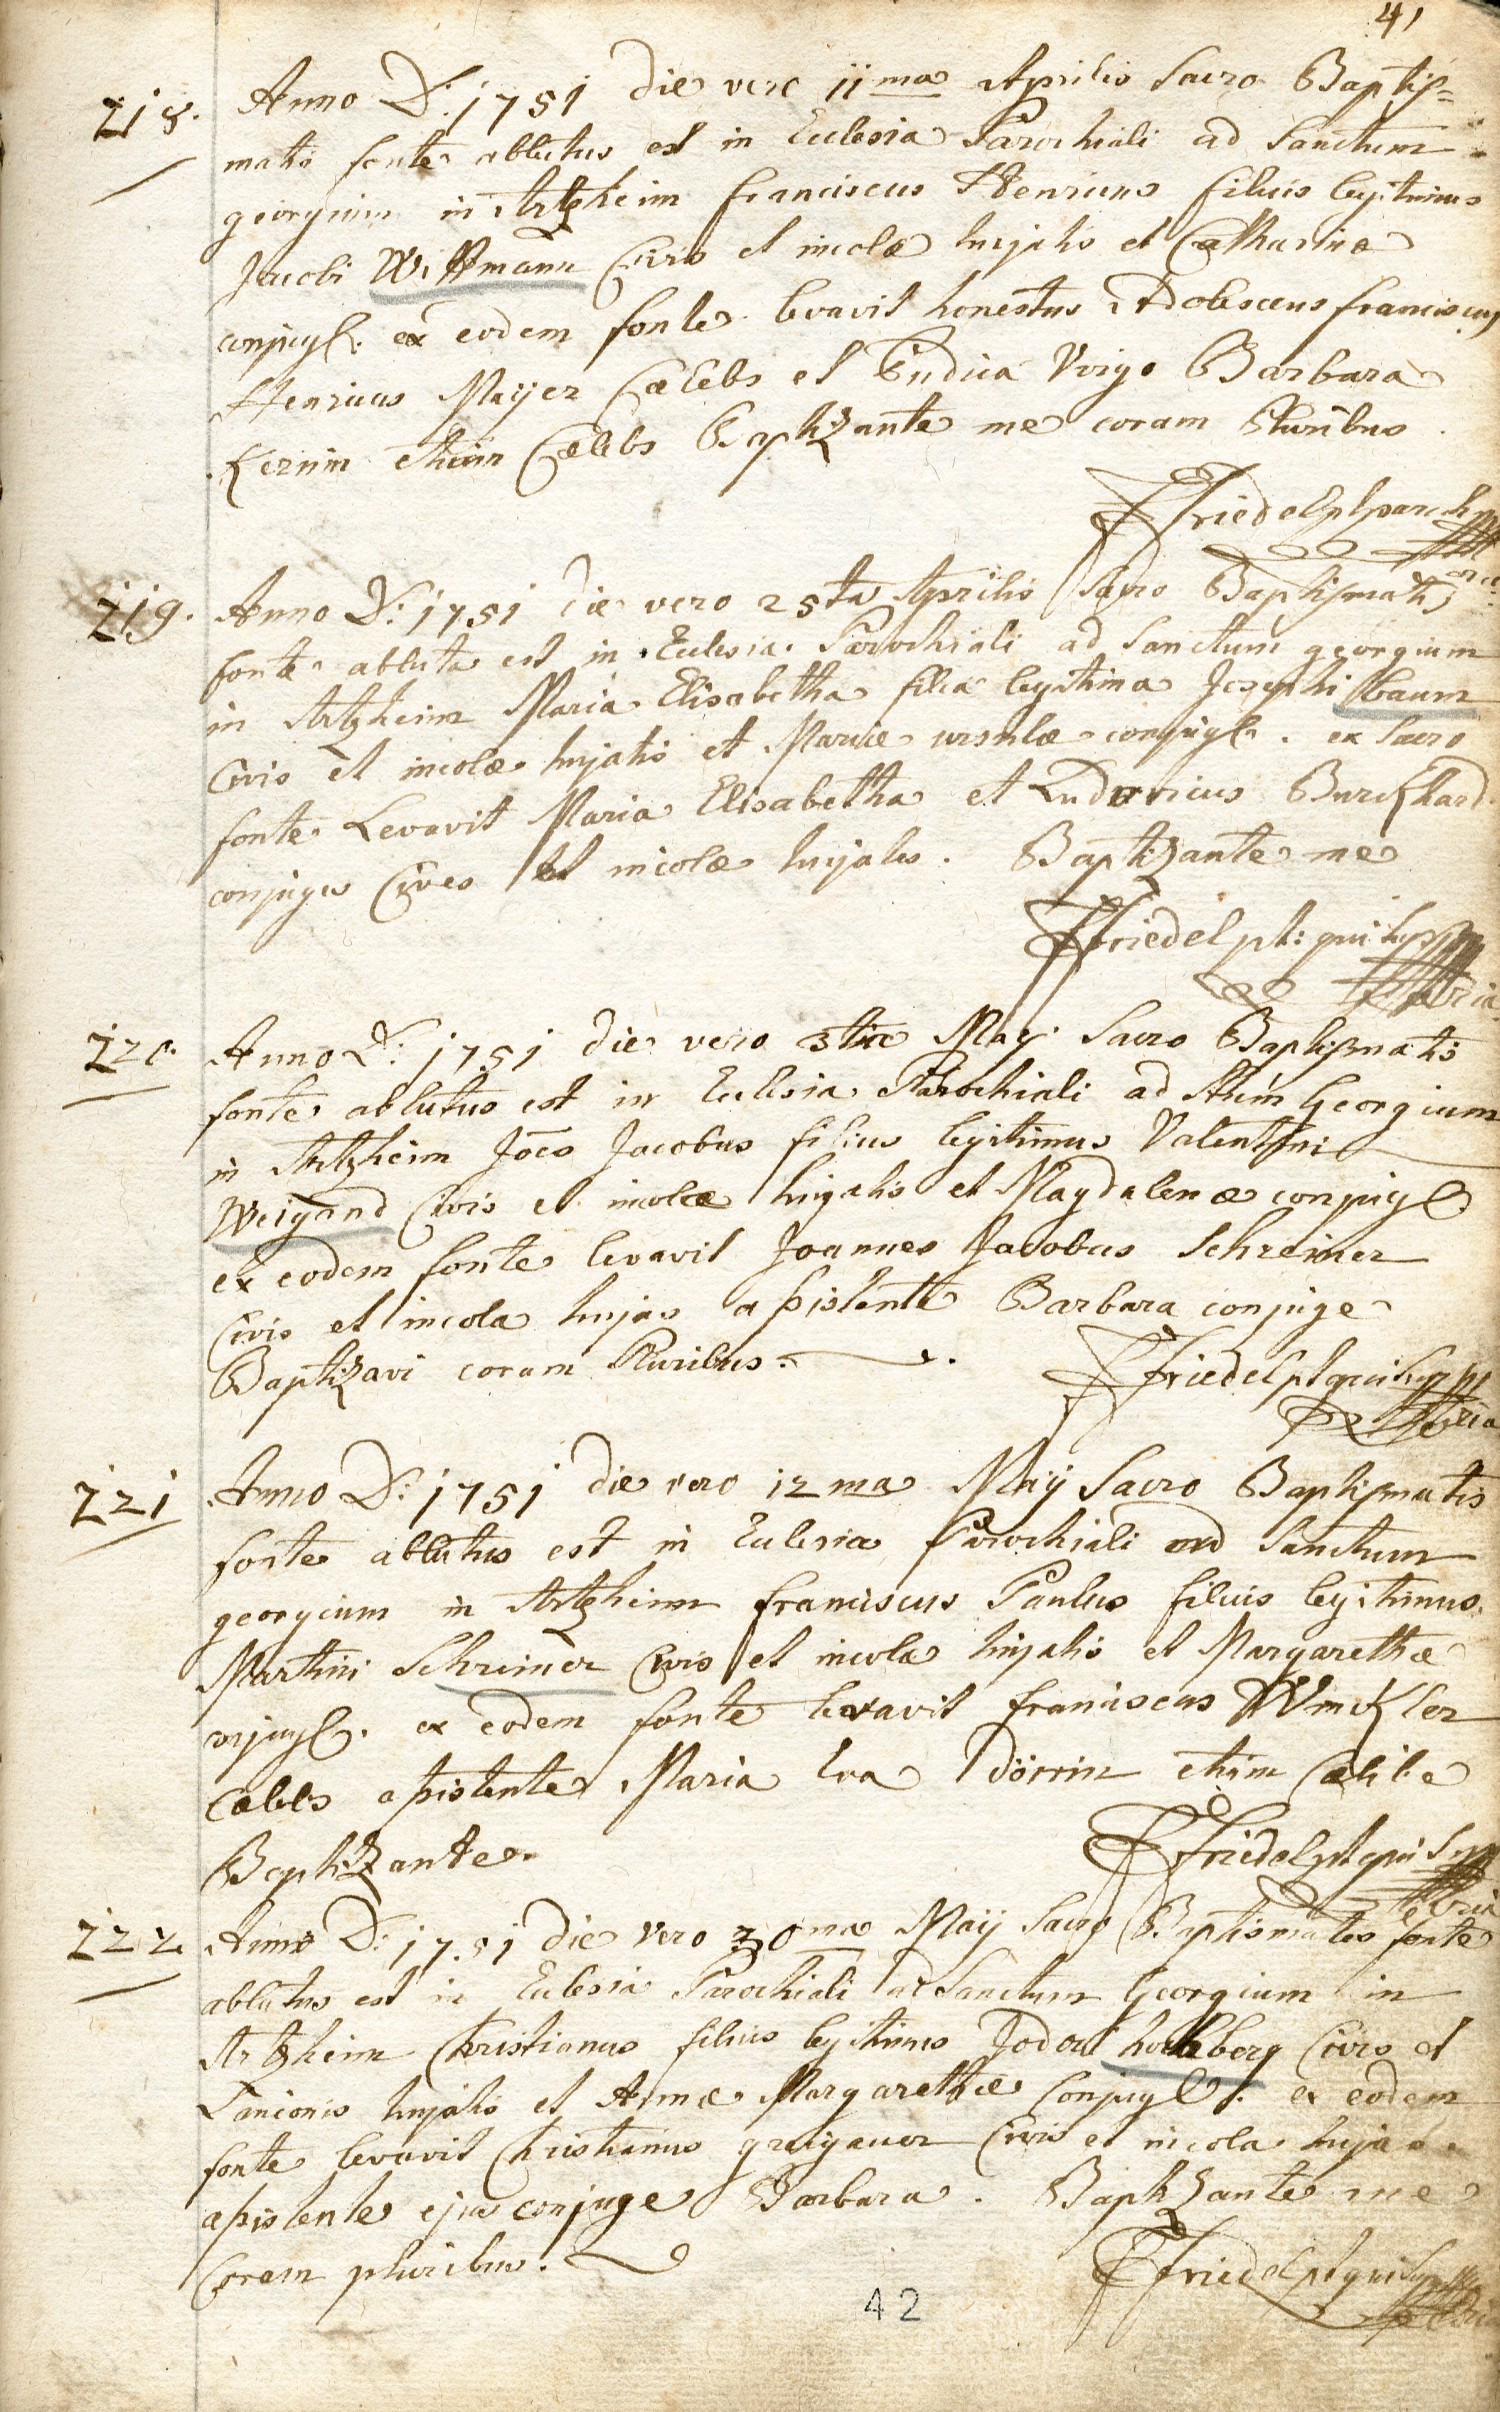 41
218. Anno D: 1751 die vero 11ma Aprilis Sacro Baptis=
matis fonte ablutus est in Ecclesia Parochiali ad Sanctum
georgium in Artzheim franciscus Henricus filius legitimus
Jacobi Wittmann Civis et incolæ hujatis et Catharinæ
conjugl: ex eodem fonte levavit honestus Adolescens franciscus
Henricus Mayer Cælebs et Pudica Virgo Barbara
Kernin etiam Cælebs Baptizante me coram Pluribus.
Friedel pl parch
219. Anno D: 1751 die vero 25ta Aprilis Sacro Baptismatis
fonte abluta est in Ecclesia Parochiali ad Sanctum georgium
in Artzheim Maria Elisabetha filia legitima Josephi Baum
Civis et incolæ hujatis et Mariæ ursulæ conjugl. ex Sacro
fonte Levavit Maria Elisabetha et Ludovicus Burckhard
conjuges Cives et incolæ hujates. Baptizante me
Friedel pl: qui supra
220. Anno D: 1751 die vero 3tia May Sacro Baptismatis
fonte ablutus est in Ecclesia Parochiali ad Stum Georgium
in Artzheim Joes Jacobus filius legitimus Valentini
Weigand Civis et incolæ hujatis et Magdalenæ conjugl
ex eodem fonte levavit Joannes Jacobus Schreiner
Civis et incola hujas assistente Barbara conjuge
Baptizavi coram Pluribus.
Friedel pl qui supra
221 Anno D: 1751 die vero 12ma Maij Sacro Baptismatis
fonte ablutus est in Ecclesia Parochiali ad Sanctum
georgium in Artzheim franciscus Paulus filius legitimus
Martini Schreiner Civis et incola hujatis et Margarethæ
conjugl. ex eodem fonte levavit franciscus Winckler
Cælebs assistente Maria Eva Dörrin etiam Cælibe
Baptizante
Friedel pl qui supra
222 Anno D: 1751 die vero 30ma Maij Sacro Baptismates fonte
ablutus est in Ecclesia Parochiali ad Sanctum Georgium in
Artzheim Christianus filius legitimus Jodoci Civis et
Lanionis hujatis et Annæ Margarethæ Conjugl. ex eodem
fonte levavit Christianus Civis et incola hujas
assistente ejus conjuge Barbara. Baptizante me
Coram pluribus.
Friedel pl qui supra
42